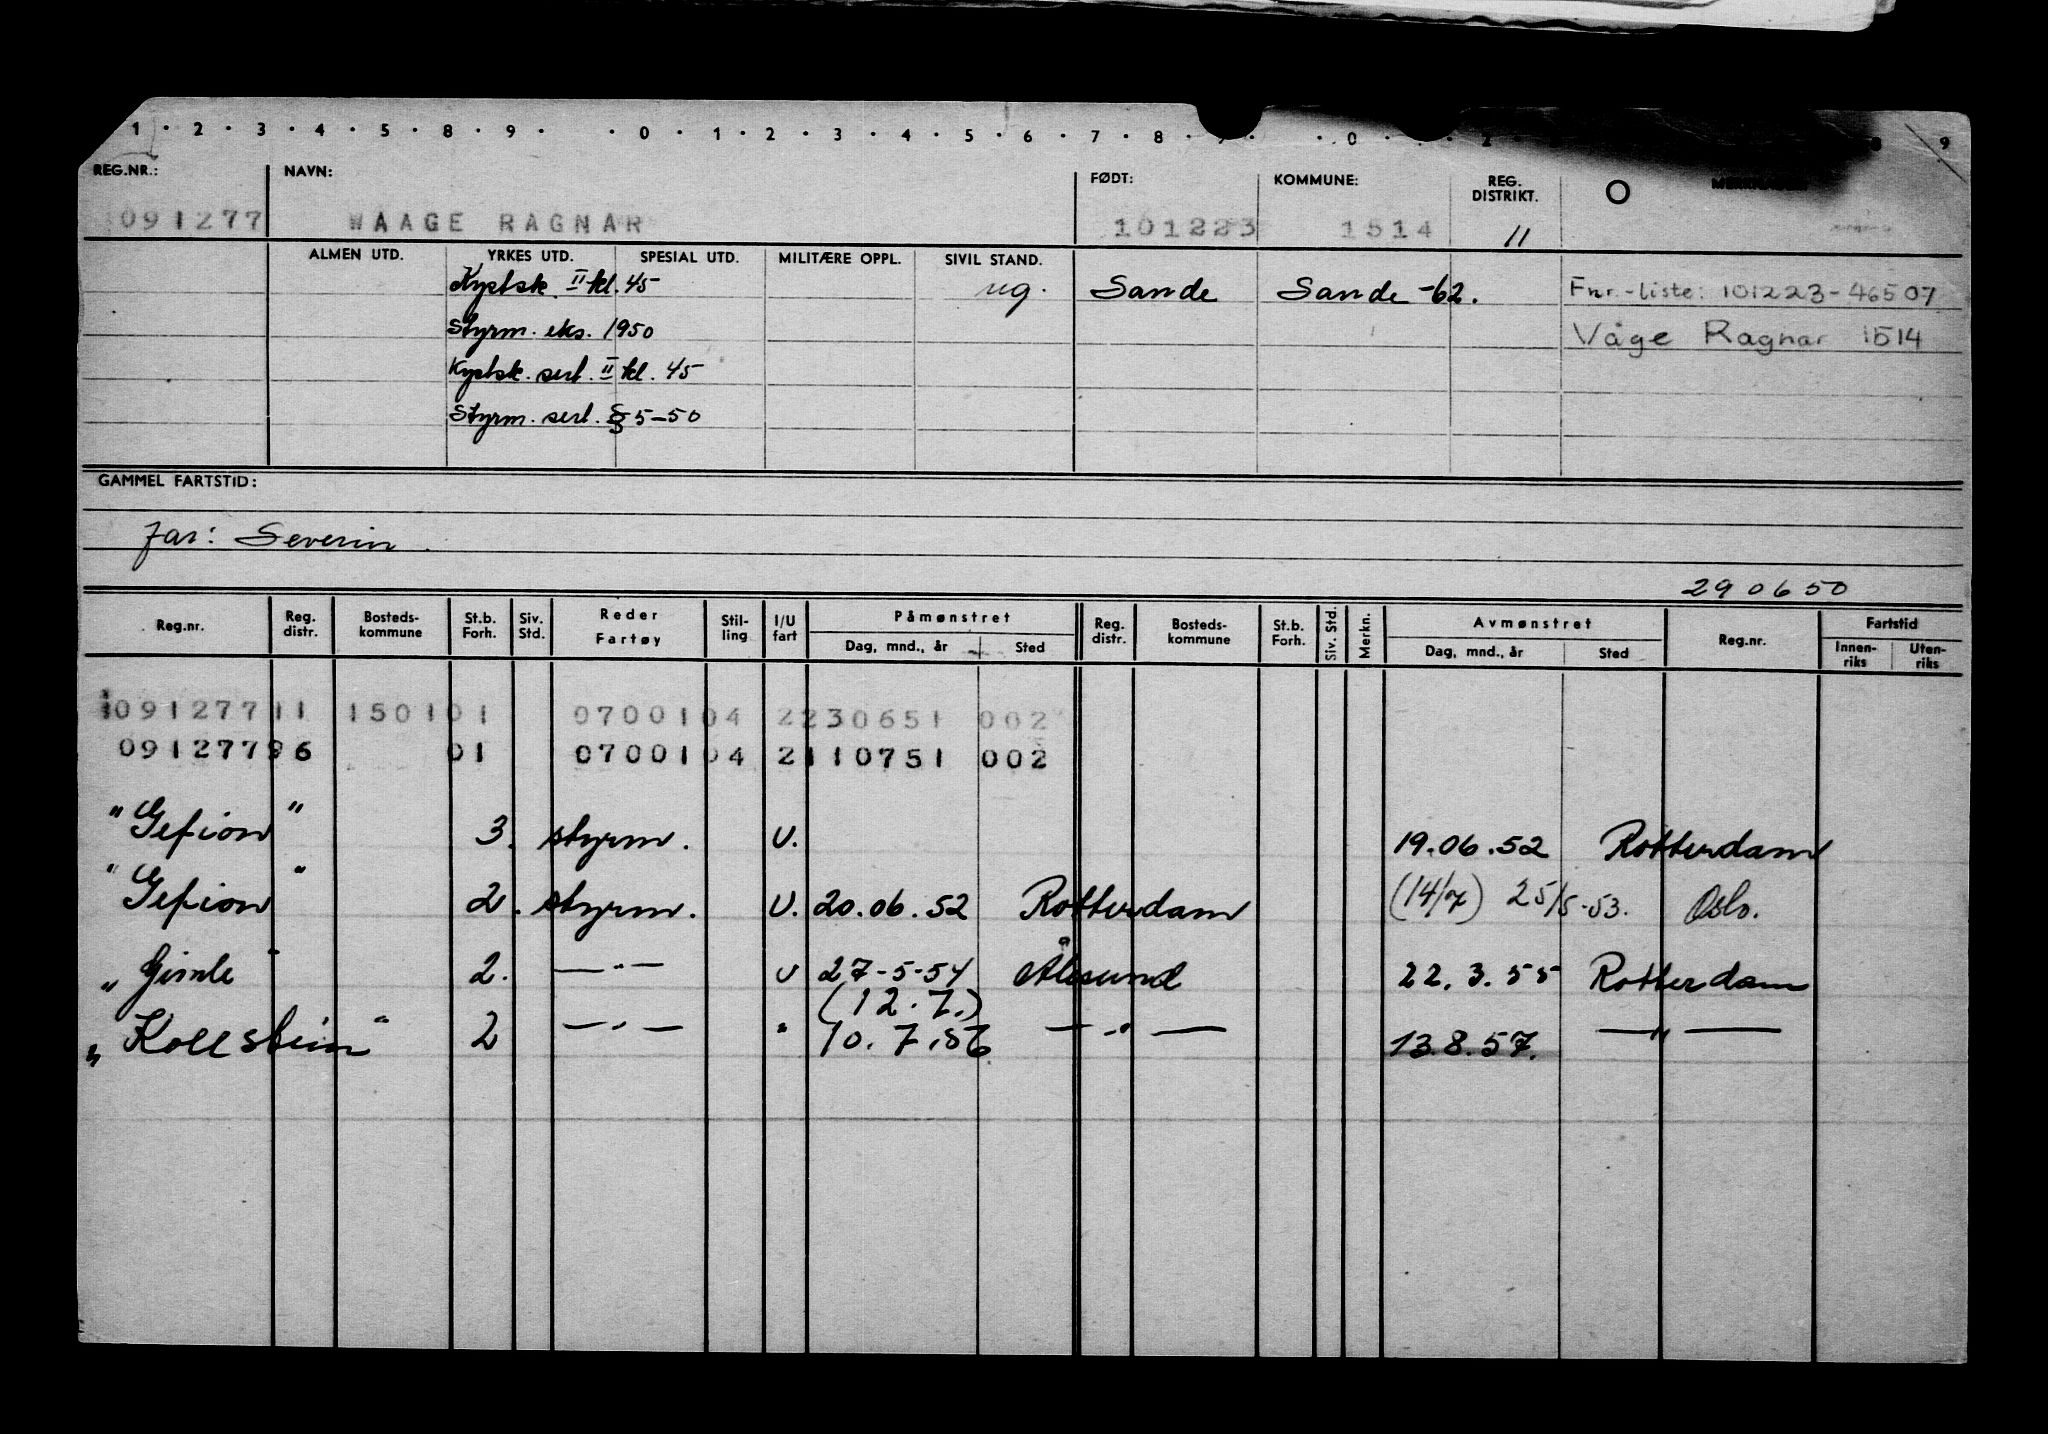 1 · 2 · 3 · 4 · 5 · 8 · 9 · · 0 · 1 · 2 · 3 · 4 · 5 · 6 · 7 · 8 · 9 · · 0 · 2 8 9
REG.NR.: NAVN: FØDT: KOMMUNE: REG. DISTRIKT. O
091277 WAAGE RAGNAR 101223 1514 11
ALMEN UTD. YRKES UTD. SPESIAL UTD. MILITÆRE OPPL. SIVIL STAND.
Kystsk. II kl. 45 ug. Sande Sande -62. Fnr.-liste: 101223-46507
Styrm. eks. 1950 Våge Ragnar 1514
Kystsk. sert. II kl. 45
Styrm. sert. § 5-50
GAMMEL FARTSTID:
Far: Severin.
290650
Reg.nr. Reg. distr. Bosteds-kommune St.b. Forh. Siv. Std. Reder Fartøy Stil-ling I/U fart Påmønstret Dag, mnd., år Sted Reg. distr. Bosteds-kommune St.b. Forh. Siv. Std. Merkn. Avmønstret Dag, mnd., år Sted Reg.nr. Fartstid Innen-riks Uten-riks
09127711 150101 0700104 2230651 002
09127796 01 0700104 2110751 002
"Gefion" 3. styrm. U. 19.06.52 Rotterdam
"Gefion" 2. styrm. U. 20.06.52 Rotterdam (14/7) 25/5-53. Oslo.
"Gimle" 2. —"— U 27-5-54 Ålesund 22.3.55 Rotterdam
(12.7.)
"Kollstein" 2 —"— " 10.7.56 —"— 13.8.57. —"—